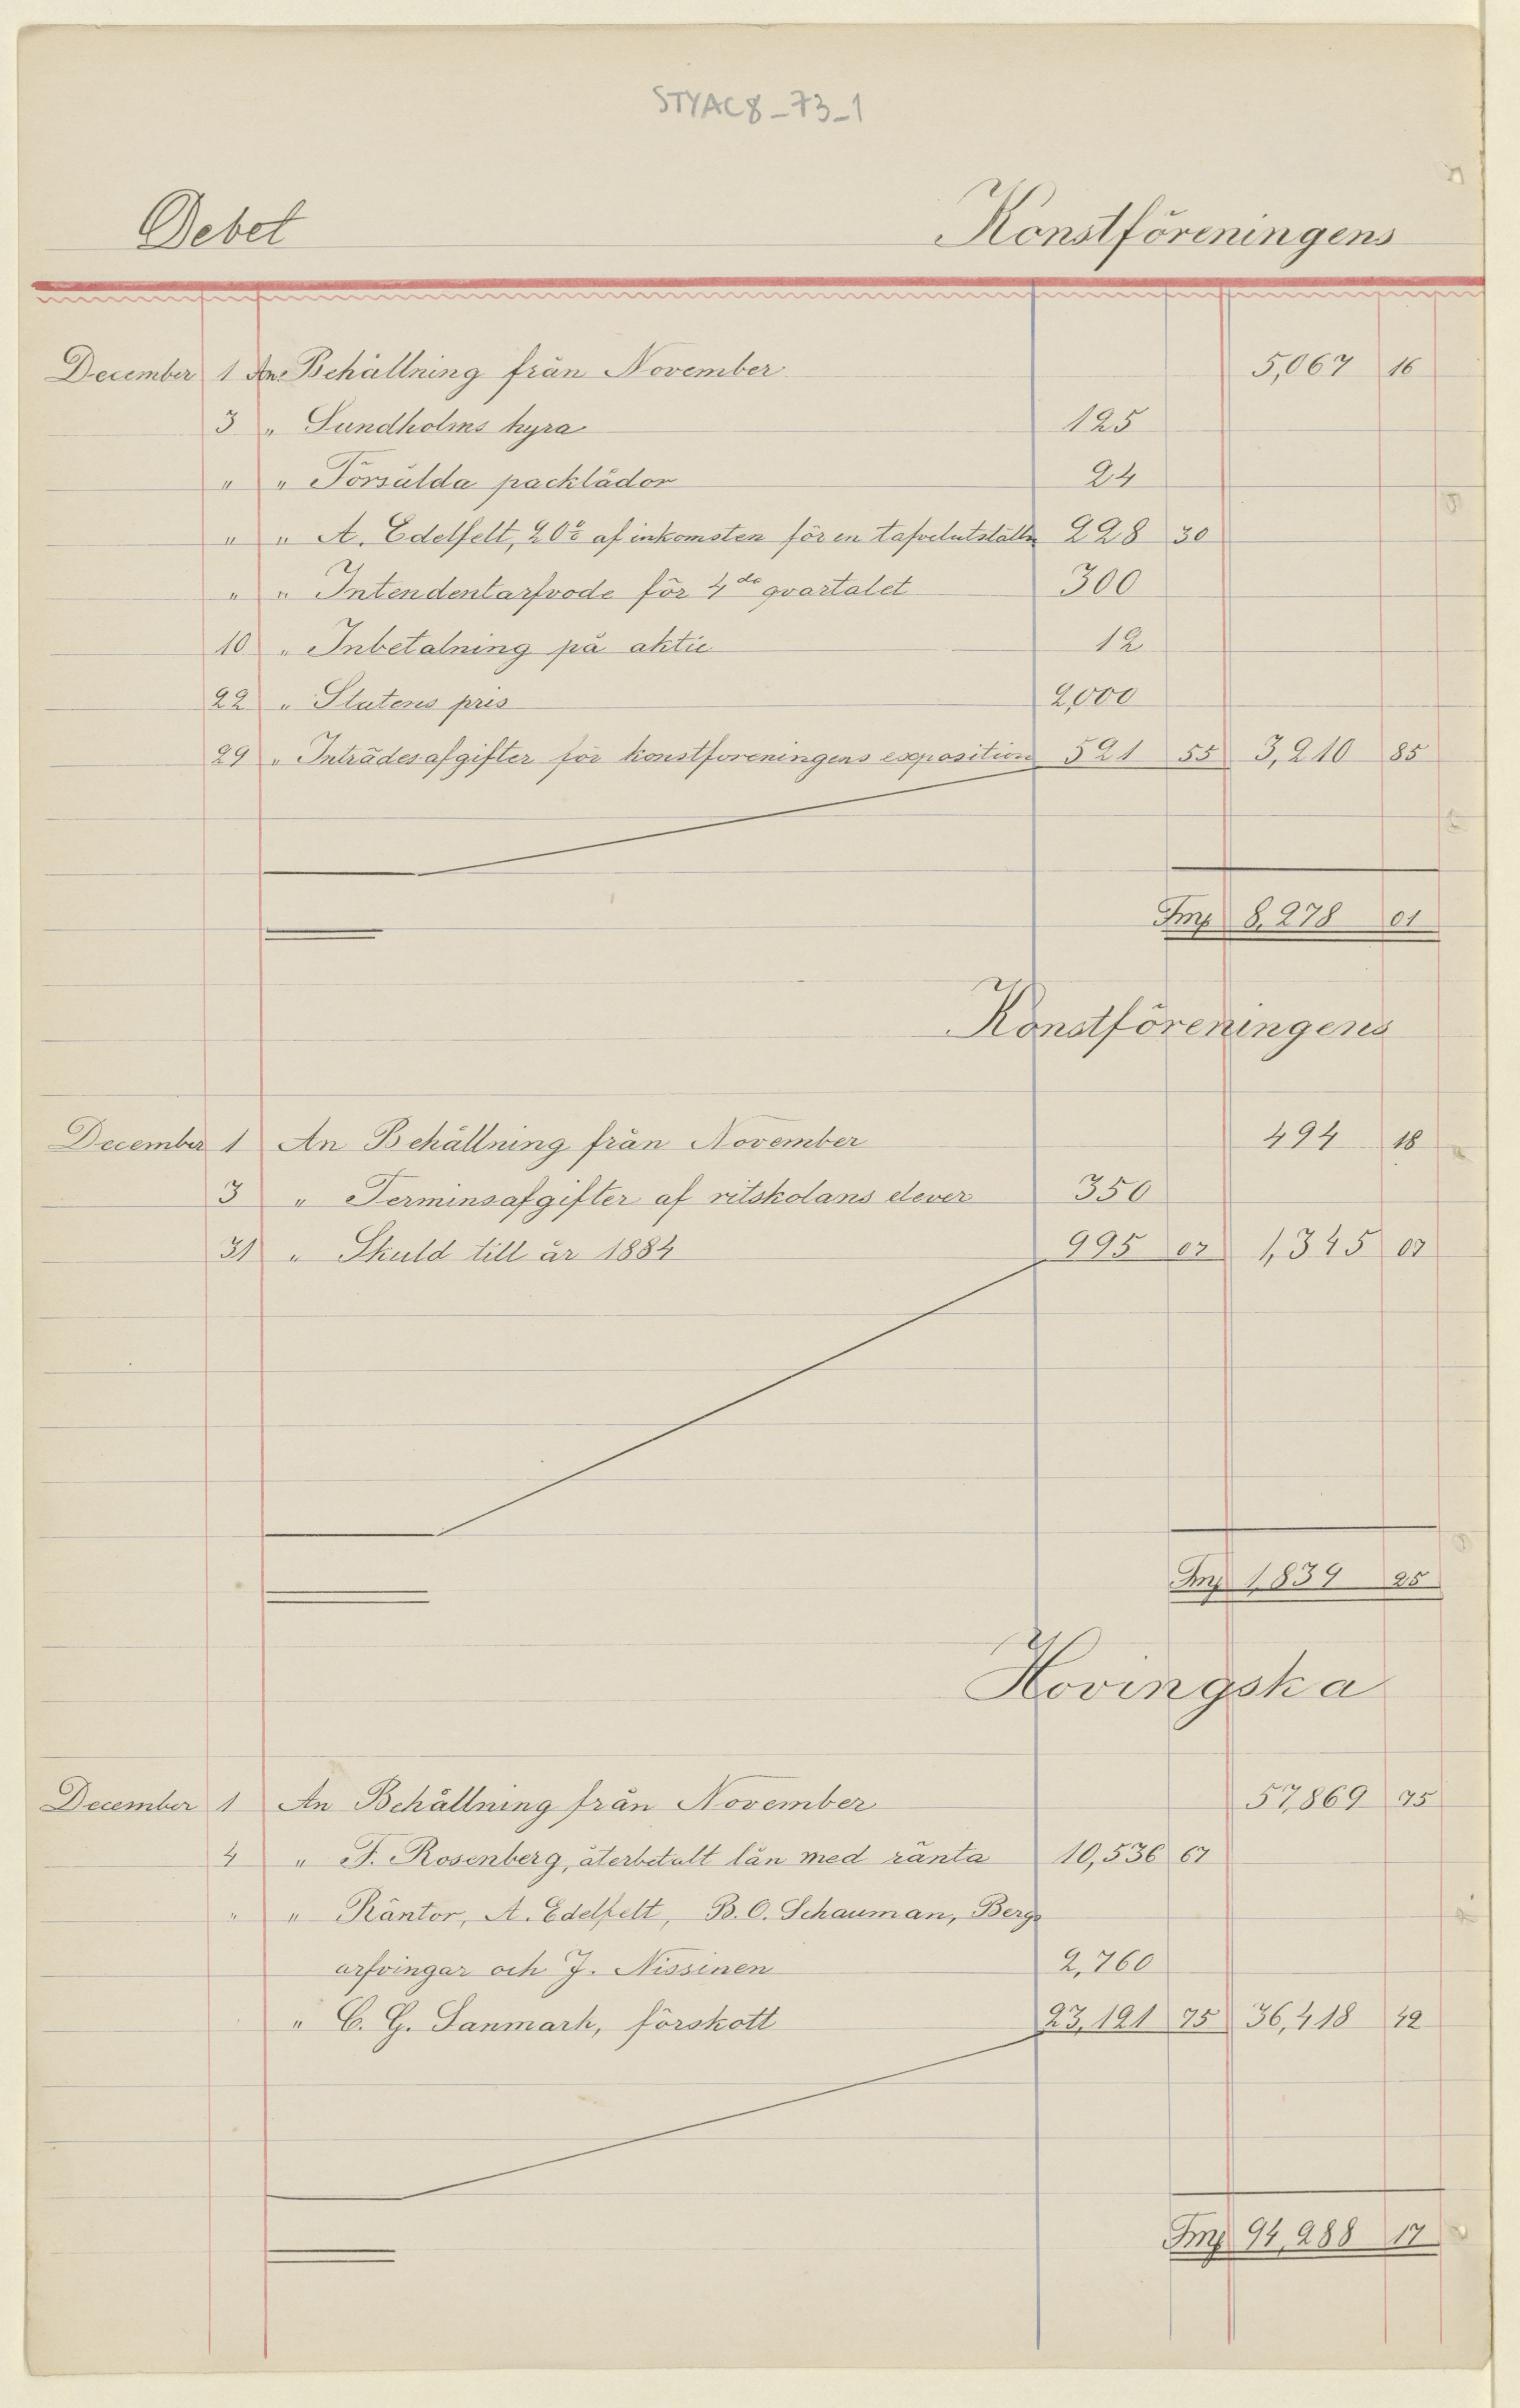 STYAC8_73_1
Debet Konstföreningens
December 1 An Behållning från November 5,067 16
3 " Sundholms hyra 125
" " Försålda packlådor 24
" " A. Edelfelt, 20% af inkomsten för en tafvelutställn 228 30
" " Intendentarfvode för 4de qvartalet 300
10 " Inbetalning på aktie 12
22 " Statens pris 2,000
29 " Inträdesafgifter för konstföreningens exposition 521 55 3,210 85
Fmk 8,278 01
Konstföreningens
December 1 An Behållning från November 494 18
3 " Terminsafgifter af ritskolans elever 350
31 " Skuld till år 1884 995 07 1,345 07
Fmk 1,839 25
Hovingska
December 1 An Behållning från November 57,869 75
4 " F. Rosenberg, återbetalt lån med ränta 10,536 67
" " Räntor, A. Edelfelt, B. O. Schauman, Bergs
arfvingar och J. Nissinen 2,760
" C. G. Sanmark, förskott 23,121 75 36,418 42
Fmk 94,288 17